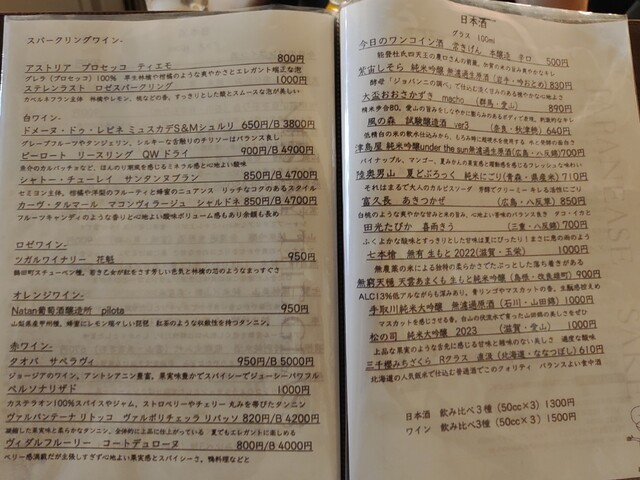 スパークリングワイン-
アストリア プロセッコ ティエモ 800円
グレラ(プロセッコ)100% 早生林檎や柑橘のような爽やかさとエレガント極正な泡
ステレンラスト ロゼスパークリング 1000円
カベルネフラン主体 林檎やレモン、桃などの香、すっきりとした酸とスムースな泡が美しい
白ワイン-
ドメーヌ・ドゥ・レピネ ミュスカデS&Mシュルリ 650円/B 3800円
グレープフルーツやタンジェリン、シルキーな舌触りのチリソーはバランス良し
ピーロート リースリング QW ドライ 900円/B 4900円
シャトー・ューレイ サンタンヌブラン 850円/B 4700円
セミヨン主体、柑橘や洋梨のフルーティと蜂蜜のニュアンス リッチなコクのあるスタイル
カーヴ・タルマール マコンヴィラージュ シャルドネ 850円/B 4700円
フルーツキャンディのような香りと心地よい酸味ボリューム感もあり余韻も長め
ロゼワイン-
ツガルワイナリー 花魁 950円
鶴田町スチューベン種、若き乙女が紅をさす芳しい色気と林檎の芯のようなまっすぐさ
オレンジワイン-
Natan葡萄酒醸造所 pilota 950円
山梨県産甲州種、蜂蜜にレモン瑞々しい琵琶 紅茶のような収斂性を持つタンニン。
赤ワイン-
タオバ サペラヴィ 950円/B 5000円
ジョージアのワイン。アントシアニン豊富、果実味豊かでスパイシーでジューシーパワフル
ペルソナリザド 1000円
カステラオン100%スパイスやジャム、ストロベリーやチェリー 丸みを帯びたタンニン
ヴァルパンテーナ リトッコ ヴァルポリチェッラ リパッソ 820円/B 4200円
凝縮した果実味と柔らかなタンニン、全体的に上品に仕上がっている 夏でもエレガントに楽しめる
ヴィダルフルーリー コートデュローヌ 800円/B 4000円
ベリー感満載だが主張しすぎず心地よい果実感とスパイシーさ。鴨料理などと
日本酒
グラス 100ml
今日のワンコイン酒 雲きげん 本醸造 辛口 500円
紫宙しそら 純米大吟醸 無濾過生原酒(岩手・吟おとめ) 830円
酵母「ジョバンニの調べ」で仕込む淡く甘みのある穏やかな心地よさ
大盃おおさかずき macho (群馬・愛山) 890円
風の森 試験醸造酒 ver3 (奈良・秋津穂) 640円
津島屋 純米大吟醸under the sun無濾過生原酒(広島・八反錦)700円
パイナップル、マンゴー、夏みかんの果実感と躍動感を感じるフレッシュな味わい
陸奥男山 夏どぶろっく 純米にごり(青森・県産米) 710円
それはまるで大人のカルピスソーダ 芳醇でクリーミー キレる活性にごり
富久長 あきつかぜ (広島・八反草) 850円
白桃のような爽やかな甘みと米の旨み、心地よい苦味のバランス良き タコ・イカと
田光たびか 喜雨きう (三重・八反錦) 700円
ふくよかな酸味とすっきりとした甘味は夏にぴったり!まさに恵の雨のよう
七本槍 無有 生もと 2022(滋賀・玉栄) 1000円
無農薬の米による独特の柔らかさでたぷっとした落ち着きがある
無窮天穏 天雲あまくも 生もと純米吟醸(島根・佐香錦) 900円
ALC13%低アルながらも深みあり。青リンゴやマスカットの香。生酛感控えめ
手取川純米大吟醸 無濾過原酒(石川・山田錦) 1000円
マスカットを感じさせる香。白山の伏流水で育った山田錦の美しさをぜひ
松の司 純米大吟醸 2023 (滋賀・愛山) 1000円
上品な果実のような舌先に感じる甘味と雑味のない美しさ 適度な酸味
三千櫻みちざくら Rクラス 直汲(北海道・ななつぼし) 610円
北海道の人気飯米で仕込む普通酒でこのクォリティ バランスよい食中酒
日本酒 飲み比べ3種(50cc×3) 1300円
ワイン 飲み比べ3種(50cc×3) 1500円